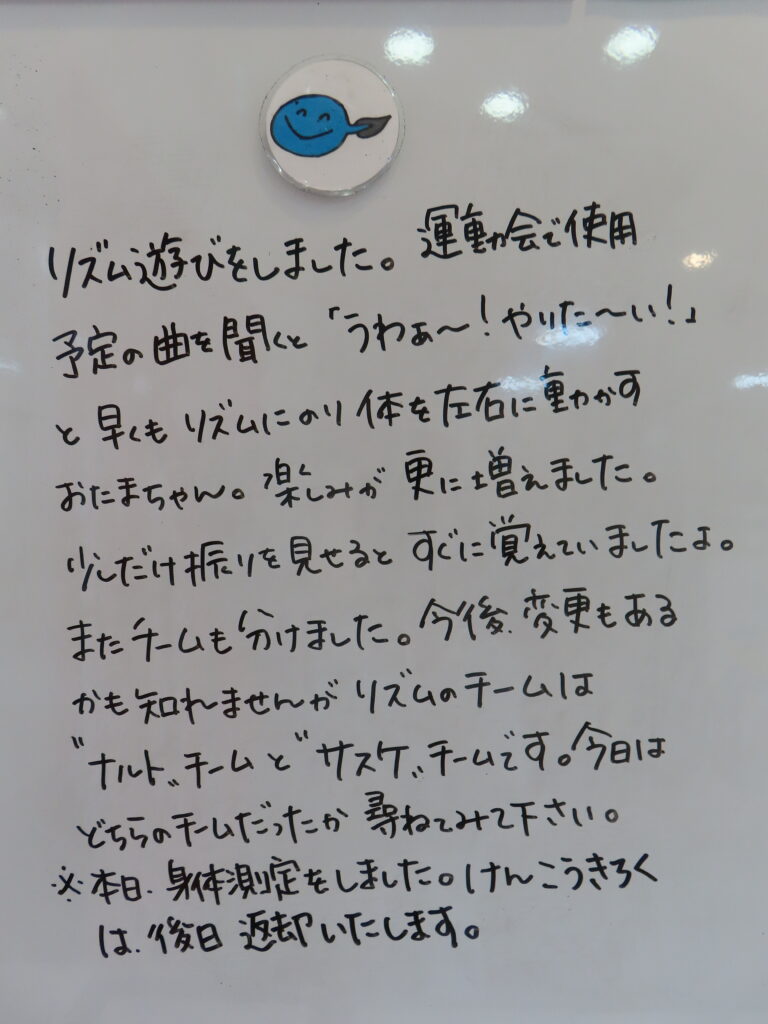 リズム遊びをしました。運動会で使用
予定の曲を聞くと「うわぁ〜!やりた〜い!」
と早くもリズムにのり体を左右に動かす
おたまちゃん。楽しみが更に増えました。
少しだけ振りを見せるとすぐに覚えていましたよ。
またチームも分けました。今後、変更もある
かも知れませんがリズムのチームは
"ナルト"チームと"サスケ"チームです。今日は
どちらのチームだったか尋ねてみて下さい。
※本日、身体測定をしました。けんこうきろく
は、後日返却いたします。